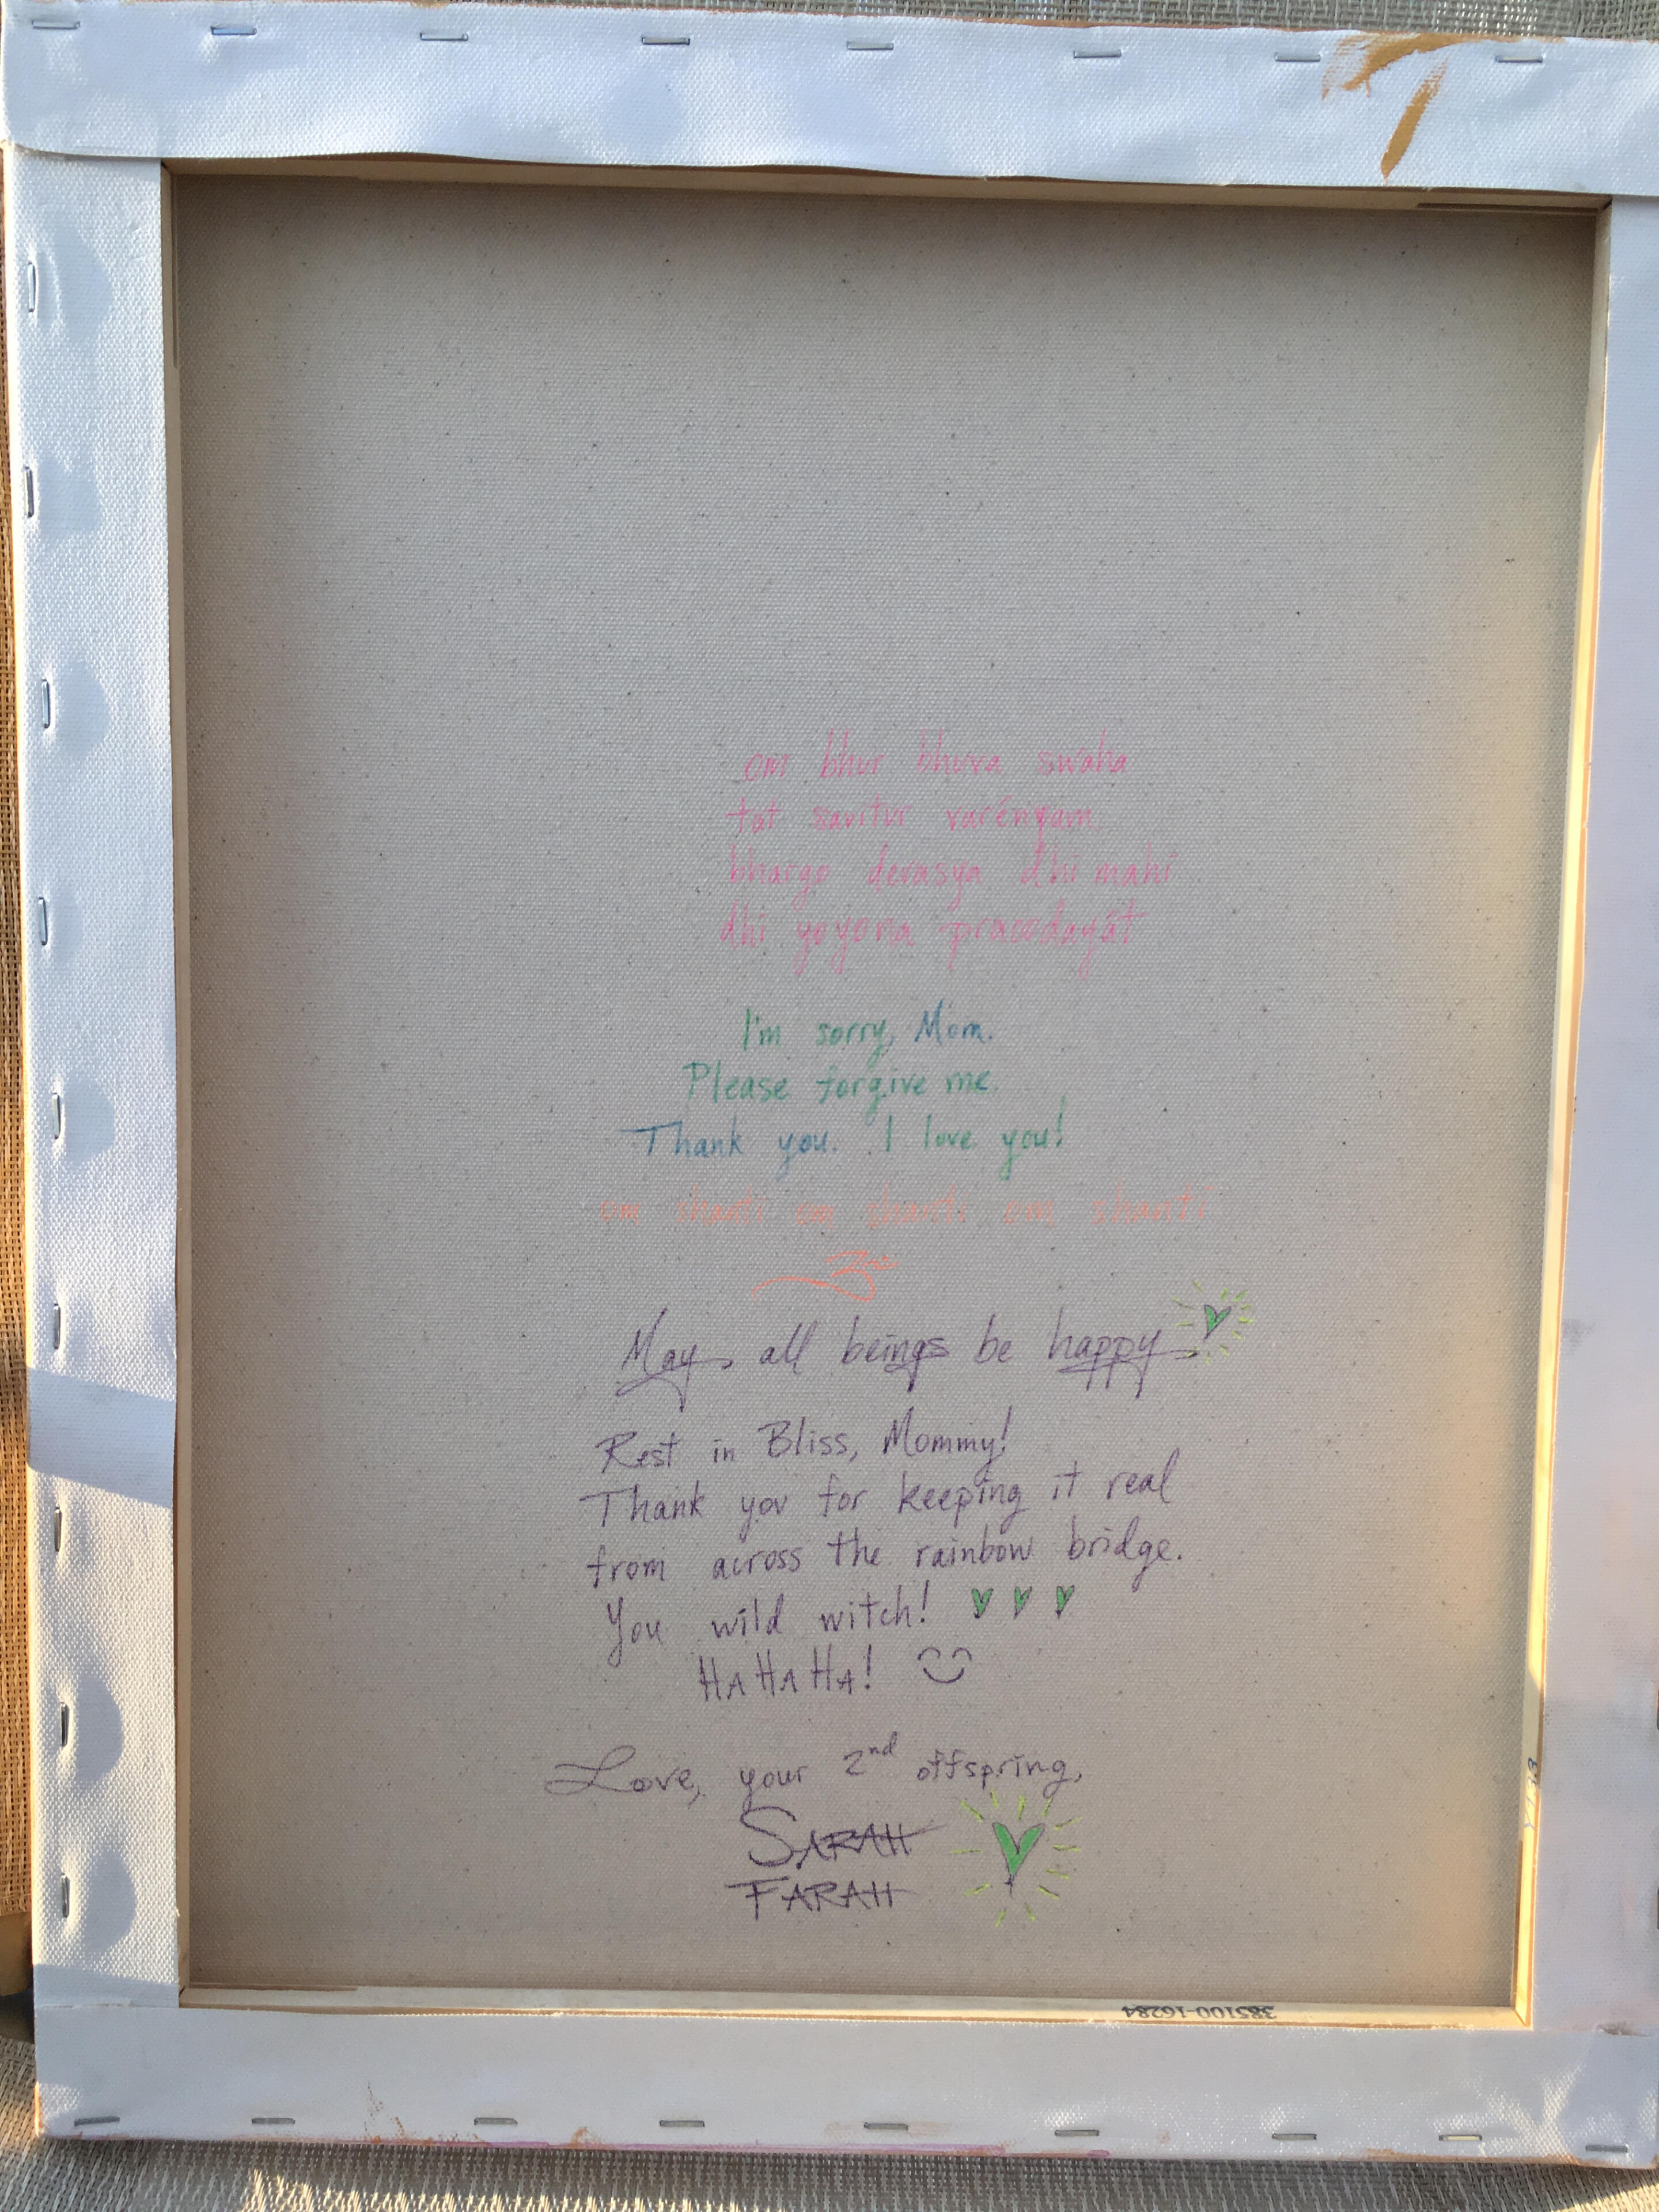 om bhur bhuva swaha
tat savitur varényam
bhargo devasya dhi mahi
dhi yoyona pracodayát
I'm sorry, Mom.
Please forgive me.
Thank you. I love you!
om shanti om shanti om shanti
May all beings be happy
Rest in Bliss, Mommy!
Thank you for keeping it real
from across the rainbow bridge.
You wild witch!
HAHAHA!
Love, your 2nd offspring,
SARAH
FARAH
385100-16284